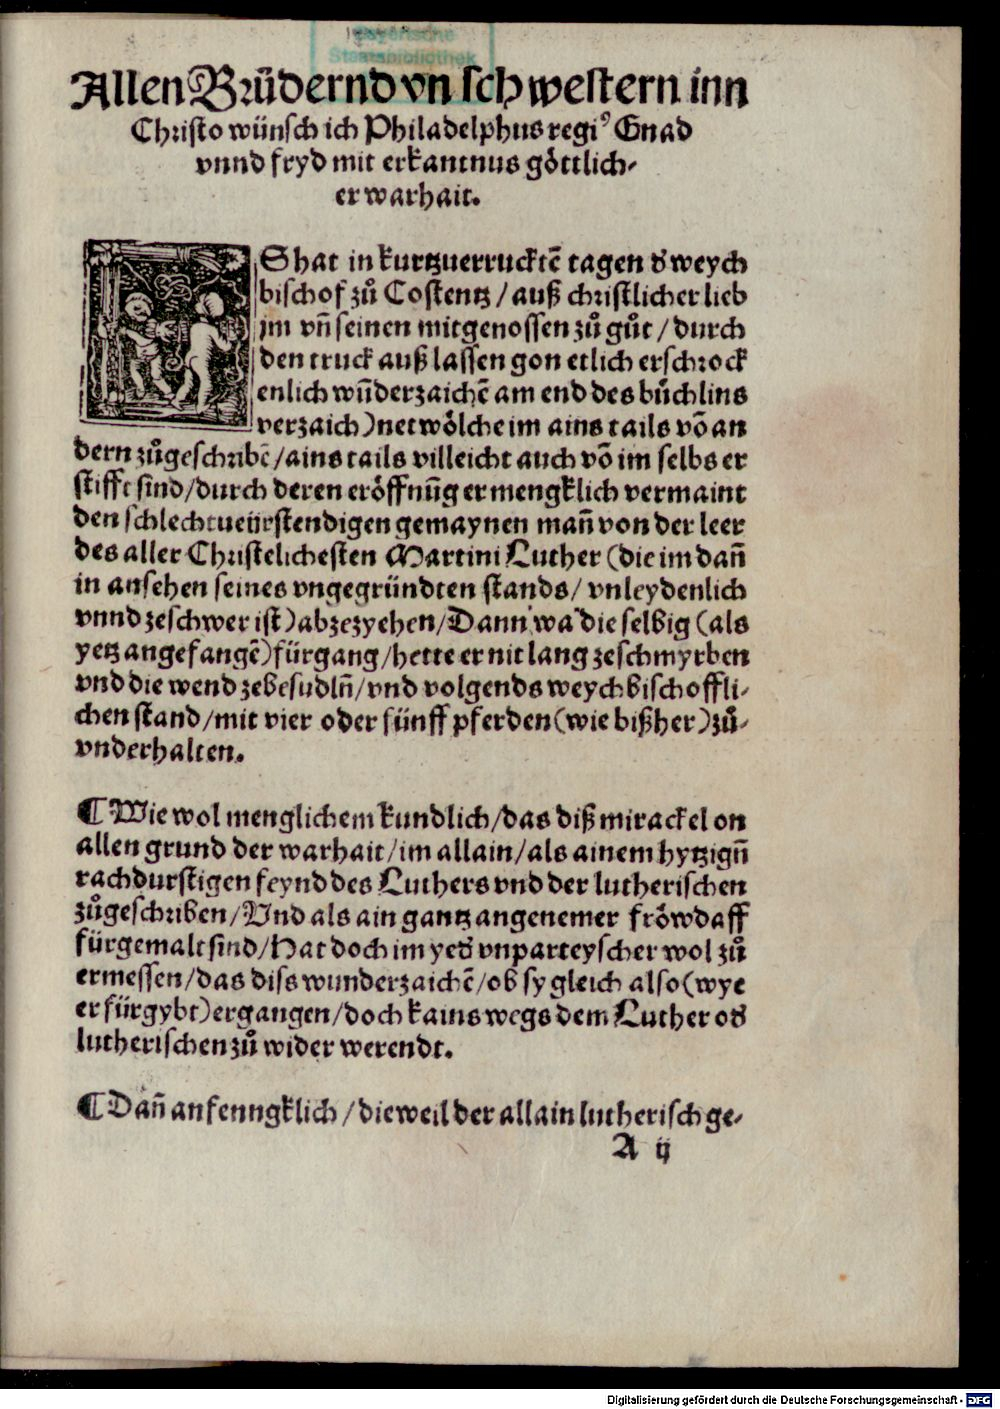 Bayerische
Staatsbibliothek
Allen Brůdernd vn̄ schwestern inn
Christo wünsch ich Philadelphus regiꝰ Gnad
vnnd fryd mit erkantnus göttlich-
er warhait.
ES hat in kurtzuerrucktē tagen ð weych
bischof zů Costentz / auß christlicher lieb
jm vn̄ seinen mitgenossen zů gůt / durch
den truck auß lassen gon etlich erschrock
enlich wūderzaichē am end des bůchlins
verzaich)net wölche im ains tails vō an
dern zůgeschribē/ains tails villeicht auch vō im selbs er
stifft sind/durch deren eröffnūg er mengklich vermaint
den schlechtuerstendigen gemaynen man̄ von der leer
des aller Christelichesten Martini Luther (die im dan̄
in ansehen seines vngegründten stands/ vnleydenlich
vnnd zeschwer ist)abzezyehen/Dann wa die selbig (als
yetz angefangē)fürgang/hette er nit lang zeschmyrben
vnd die wend zebesudln̄/vnd volgends weychbischoffli-
chen stand/mit vier oder fünff pferden(wie bißher)zů-
vnderhalten.
¶ Wie wol menglichem kundlich/das diß mirackel on
allen grund der warhait/im allain/als ainem hytzign̄
rachdurstigen feynd des Luthers vnd der lutherischen
zůgeschriben/Vnd als ain gantz angenemer fröwdaff
fürgemalt sind/Hat doch im yeð vnparteyscher wol zů
ermessen/das diss wunderzaichē/ob sy gleich also(wye
er fürgybt)ergangen/doch kains wegs dem Luther oð
lutherischen zů wider werendt.
¶ Dan̄ anfenngklich / die weil der allain lutherisch ge-
A ij
Digitalisierung gefördert durch die Deutsche Forschungsgemeinschaft - DFG